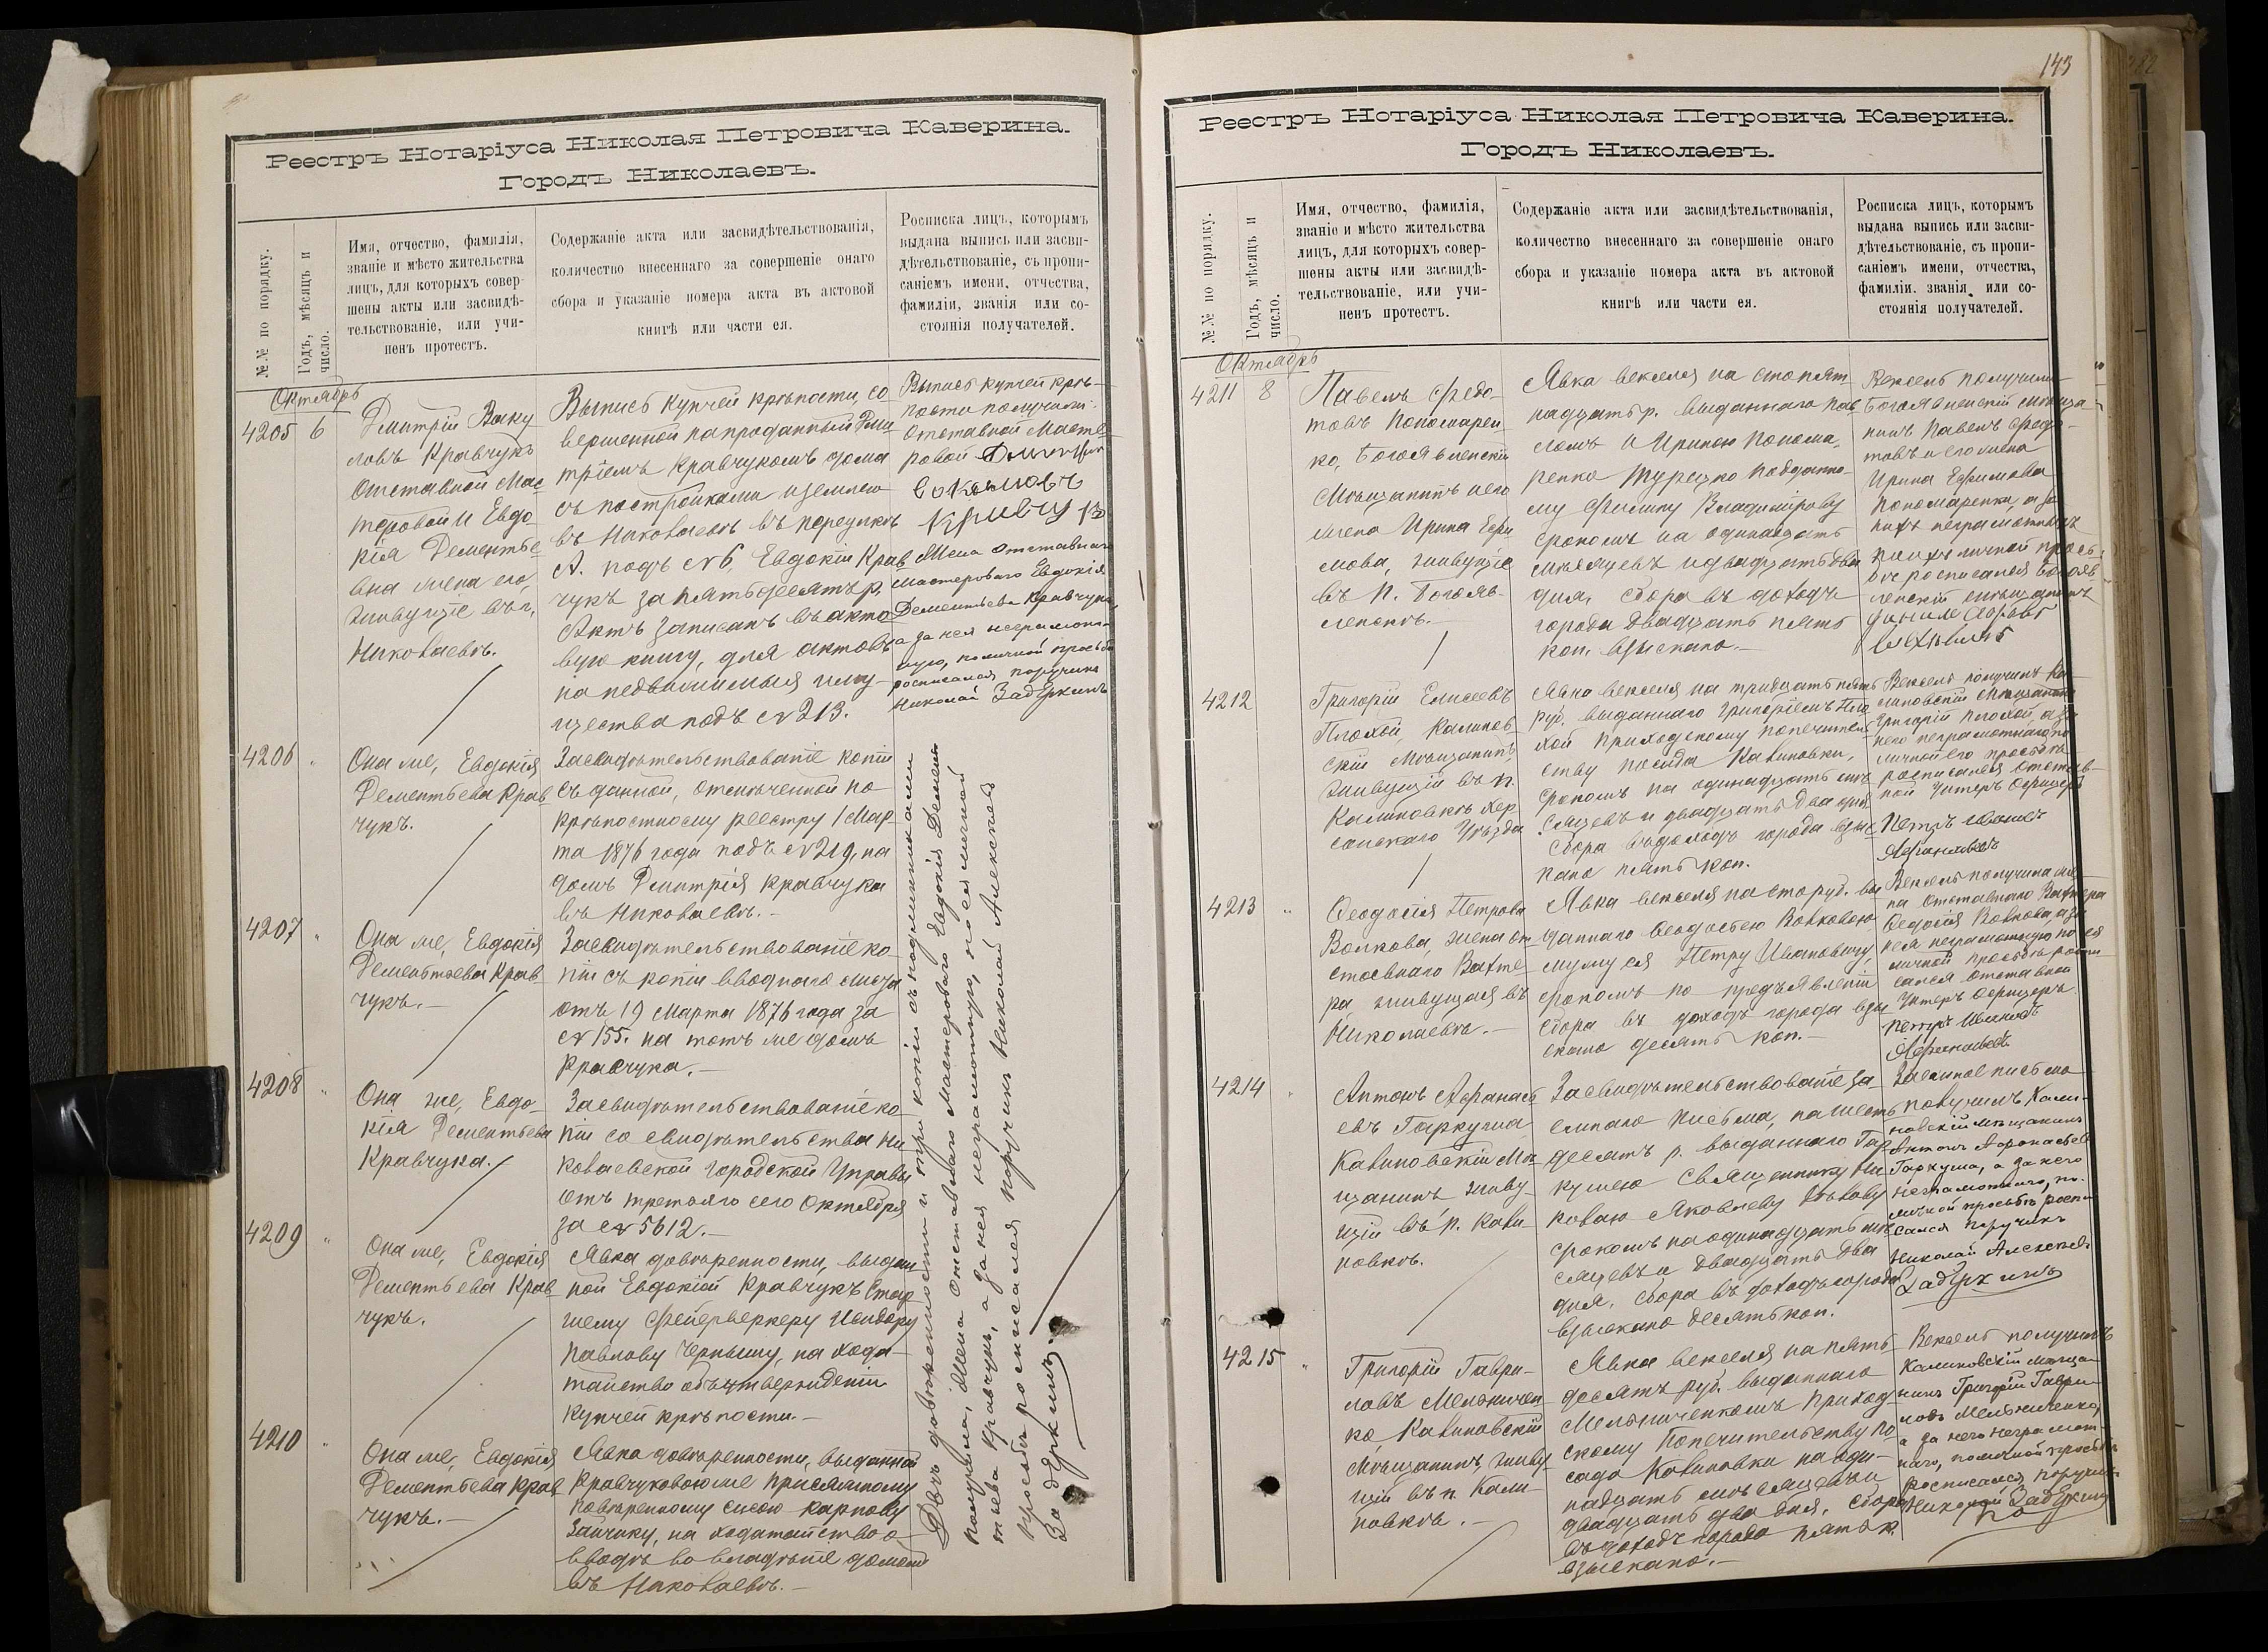 Реестръ Нотаріуса Николая Петровича Каверина.
Городъ Николаевъ.
№№ по порядку.
Годъ, мѣсяцъ и
число.
Имя, отчество, фамилія,
званіе и мѣсто жительства
лицъ, для которыхъ совер-
шены акты или засвидѣ-
тельствованіе, или учи-
ненъ протестъ.
Содержаніе акта или засвидѣтельствованія,
количество внесеннаго за совершеніе онаго
сбора и указаніе номера акта въ актовой
книгѣ или части ея.
Росписка лицъ, которымъ
выдана выпись или засви-
дѣтельствованіе, съ пропи-
саніемъ имени, отчества,
фамиліи, званія или со-
стоянія получателей.
Октябрь
4205 6
Дмитрій Ваку
ловъ Кравчукъ
Отставной Мас
теровой и Евдо
кія Дементье
вна жена его,
живущіе въ г.
Николаевѣ.
Выпись купчей крѣпости, со
вершенной на проданный Дми
тріемъ Кравчукомъ дома
съ постройками и землею
въ Николаевѣ въ переулкѣ
А. подъ №6, Евдокіи Крав
чукъ за пятьдесятъ р.
Актъ записанъ въ акто
вую книгу, для актовъ
на недвижимыя иму-
щества подъ №213.
Выпись купчей крѣ-
пости получили:
Отставной Масте-
ровой
Жена отставнаго
мастероваго Евдокія
Дементьева Кравчукъ,
а за нея неграмот-
ную, по личной просьбѣ
росписался поручикъ
Николай Задеркинъ
4206 "
Она же, Евдокія
Дементьева Крав
чукъ.
Засвидѣтельствованіе копіи
съ данной, отмѣченной по
крѣпостному реестру 1 Мар
та 1876 года подъ №219, на
домъ Дмитрія Кравчука
въ Николаевѣ.-
4207 "
Она же, Евдокія
Дементьева Крав
чукъ.-
Засвидѣтельствованіе ко-
піи съ копіи вводнаго листа
отъ 19 Марта 1876 года за
№155. на тотъ же домъ
Кравчука.-
4208 "
Она же, Евдо-
кія Дементьева
Кравчука.
Засвидѣтельствованіе ко-
піи со свидѣтельства Ни
колаевской Городской Управы
отъ третьяго сего Октября
за №5612.-
4209 "
Она же, Евдокія
Дементьева Крав
чукъ.
Явка довѣренности, выдан
ной Евдокіей Кравчукъ Стар
шему Фейерверкеру
Павлову Чернышу, на хода-
тайство объ утвержденіи
купчей крѣпости.-
4210 "
Она же, Евдокія
Дементьева Крав
чукъ.-
Явка довѣренности, выданной
Кравчуковою же Присяжному
повѣренному Карпову
Зайчику, на ходатайство о
вводѣ во владѣніе домомъ
въ Николаевѣ.-
Двѣ довѣренности и три копіи съ подлинниками
получила, Жена отставнаго Мастероваго Евдокія Демен
тьева Кравчукъ, а за нея неграмотную, по ея личной
просьбѣ росписался поручикъ Николай Алексѣевъ
Задеркинъ.
143
Реестръ Нотаріуса Николая Петровича Каверина.
Городъ Николаевъ.
№№ по порядку.
Годъ, мѣсяцъ и
число.
Имя, отчество, фамилія,
званіе и мѣсто жительства
лицъ, для которыхъ совер-
шены акты или засвидѣ-
тельствованіе, или учи-
ненъ протестъ.
Содержаніе акта или засвидѣтельствованія,
количество внесеннаго за совершеніе онаго
сбора и указаніе номера акта въ актовой
книгѣ или части ея.
Росписка лицъ, которымъ
выдана выпись или засви-
дѣтельствованіе, съ пропи-
саніемъ имени, отчества,
фамиліи. званія или со-
стоянія получателей.
Октябрь
4211 8
Павелъ Ѳедо-
товъ Пономарен-
ко, Богоявленскій
Мѣщанинъ и его
жена Ирина Ефи
мова, живущіе
въ п. Богояв-
ленскѣ.-
Явка векселя на сто пят-
надцать р. выданнаго Пав
ломъ и Ириною Понома-
ренко Турецко подданно-
му Филипу Владимірову
срокомъ на одинадцать
мѣсяцевъ и двадцать два
дня, сбора въ доходъ
города двадцать пять
коп. взыскано.-
Вексель получили
Богоявленскій мѣща-
нинъ Павелъ Ѳедо-
товъ и его жена
Ирина Ефимова
Пономаренки, а за
нихъ неграмотныхъ
по ихъ личной прось-
бѣ росписался Богояв-
ленскій мѣщанинъ
4212
Григорій Елисеевъ
Плохой, Калинов-
скій Мѣщанинъ,
живущій въ п.
Калиновкѣ Хер
сонскаго Уѣзда
Явка векселя на тридцать пять
руб. выданнаго Григоріемъ Пло
хой Приходскому попечитель
ству посада Калиновки,
срокомъ на одинадцать мѣ-
сяцевъ и двадцать два дня
Сбора въ доходъ города взыс
кано пять коп.
Вексель получилъ Ка-
линовскій Мѣщанинъ
Григорій Плохой, а за
него неграмотнаго, по
личной его просьбѣ
росписался отстав-
ной Унтеръ Офицеръ
Петръ Ивановъ
Афанасьевъ
4213 "
Ѳеодосія Петрова
Волкова, жена от
ставнаго Вахте-
ра живущая въ
Николаевѣ.-
Явка векселя на сто руб. вы
даннаго Ѳеодосіею Волковою
мужу ея Петру Ивановичу,
срокомъ по предъявленіи
сбора въ доходъ города взы
скано десять коп.-
Вексель получила же-
на Отставнаго Вахтера
Ѳедосія Волкова, а за
нея неграмотную по ея
личной просьбѣ роспи-
сался отставной
Унтеръ Офицеръ
Петръ Ивановъ
Афанасьевъ
4214 "
Антонъ Афанась
евъ Гаркуша
Калиновскій Мѣ-
щанинъ живу-
щій въ п. Кали-
новкѣ.
Засвидѣтельствованіе за-
емнаго письма, на шесть
десятъ р. выданнаго Гар-
кушею Священнику Ни
колаю Яковлеву
срокомъ на одинадцать мѣ-
сяцевъ и двадцать два
дня, сбора въ доходъ города
взыскано десять коп.
Заемное письмо
получилъ Кали-
новскій мѣщанинъ
Антонъ Афонасьевъ
Гаркуша, а за него
неграмотнаго, по
личной просьбѣ роспи-
сался поручикъ
Николай Алексѣевъ
Задеркинъ
4215 "
Григорій Гаври-
ловъ Мельничен-
ко, Калиновскій
Мѣщанинъ, живу-
щій въ п. Кали-
новкѣ.-
Явка векселя на пять-
десятъ руб. выданнаго
Мельниченкомъ Приход-
скому Попечительству по
сада Калиновки на оди-
надцать мѣсяцевъ и
двадцать два дня, сбора
въ доходъ города пять к.
взыскано.-
Вексель получилъ
Калиновскій мѣща-
нинъ Григорій Гаври-
ловъ Мельниченко,
а за него неграмот-
наго, по личной просьбѣ
росписался поручикъ
Николай Задеркинъ